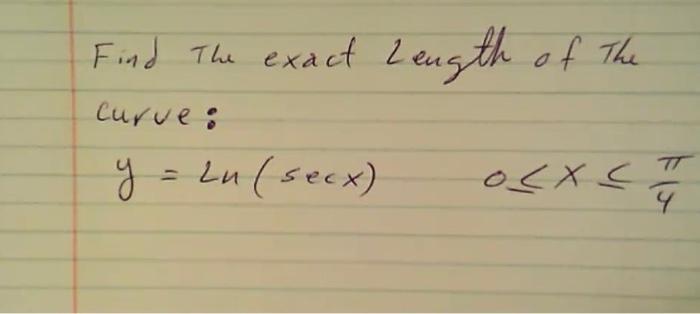 Find The exact Length of The
curve:
y = Ln(secx) 0≤x≤π/4